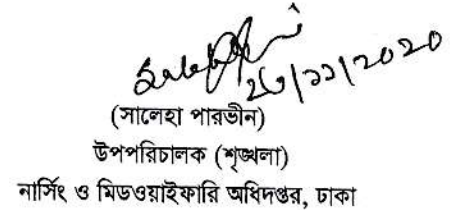 ২৬/১১/২০২০
(সালেহা পারভীন)
উপপরিচালক (শৃঙ্খলা)
নার্সিং ও মিডওয়াইফারি অধিদপ্তর, ঢাকা